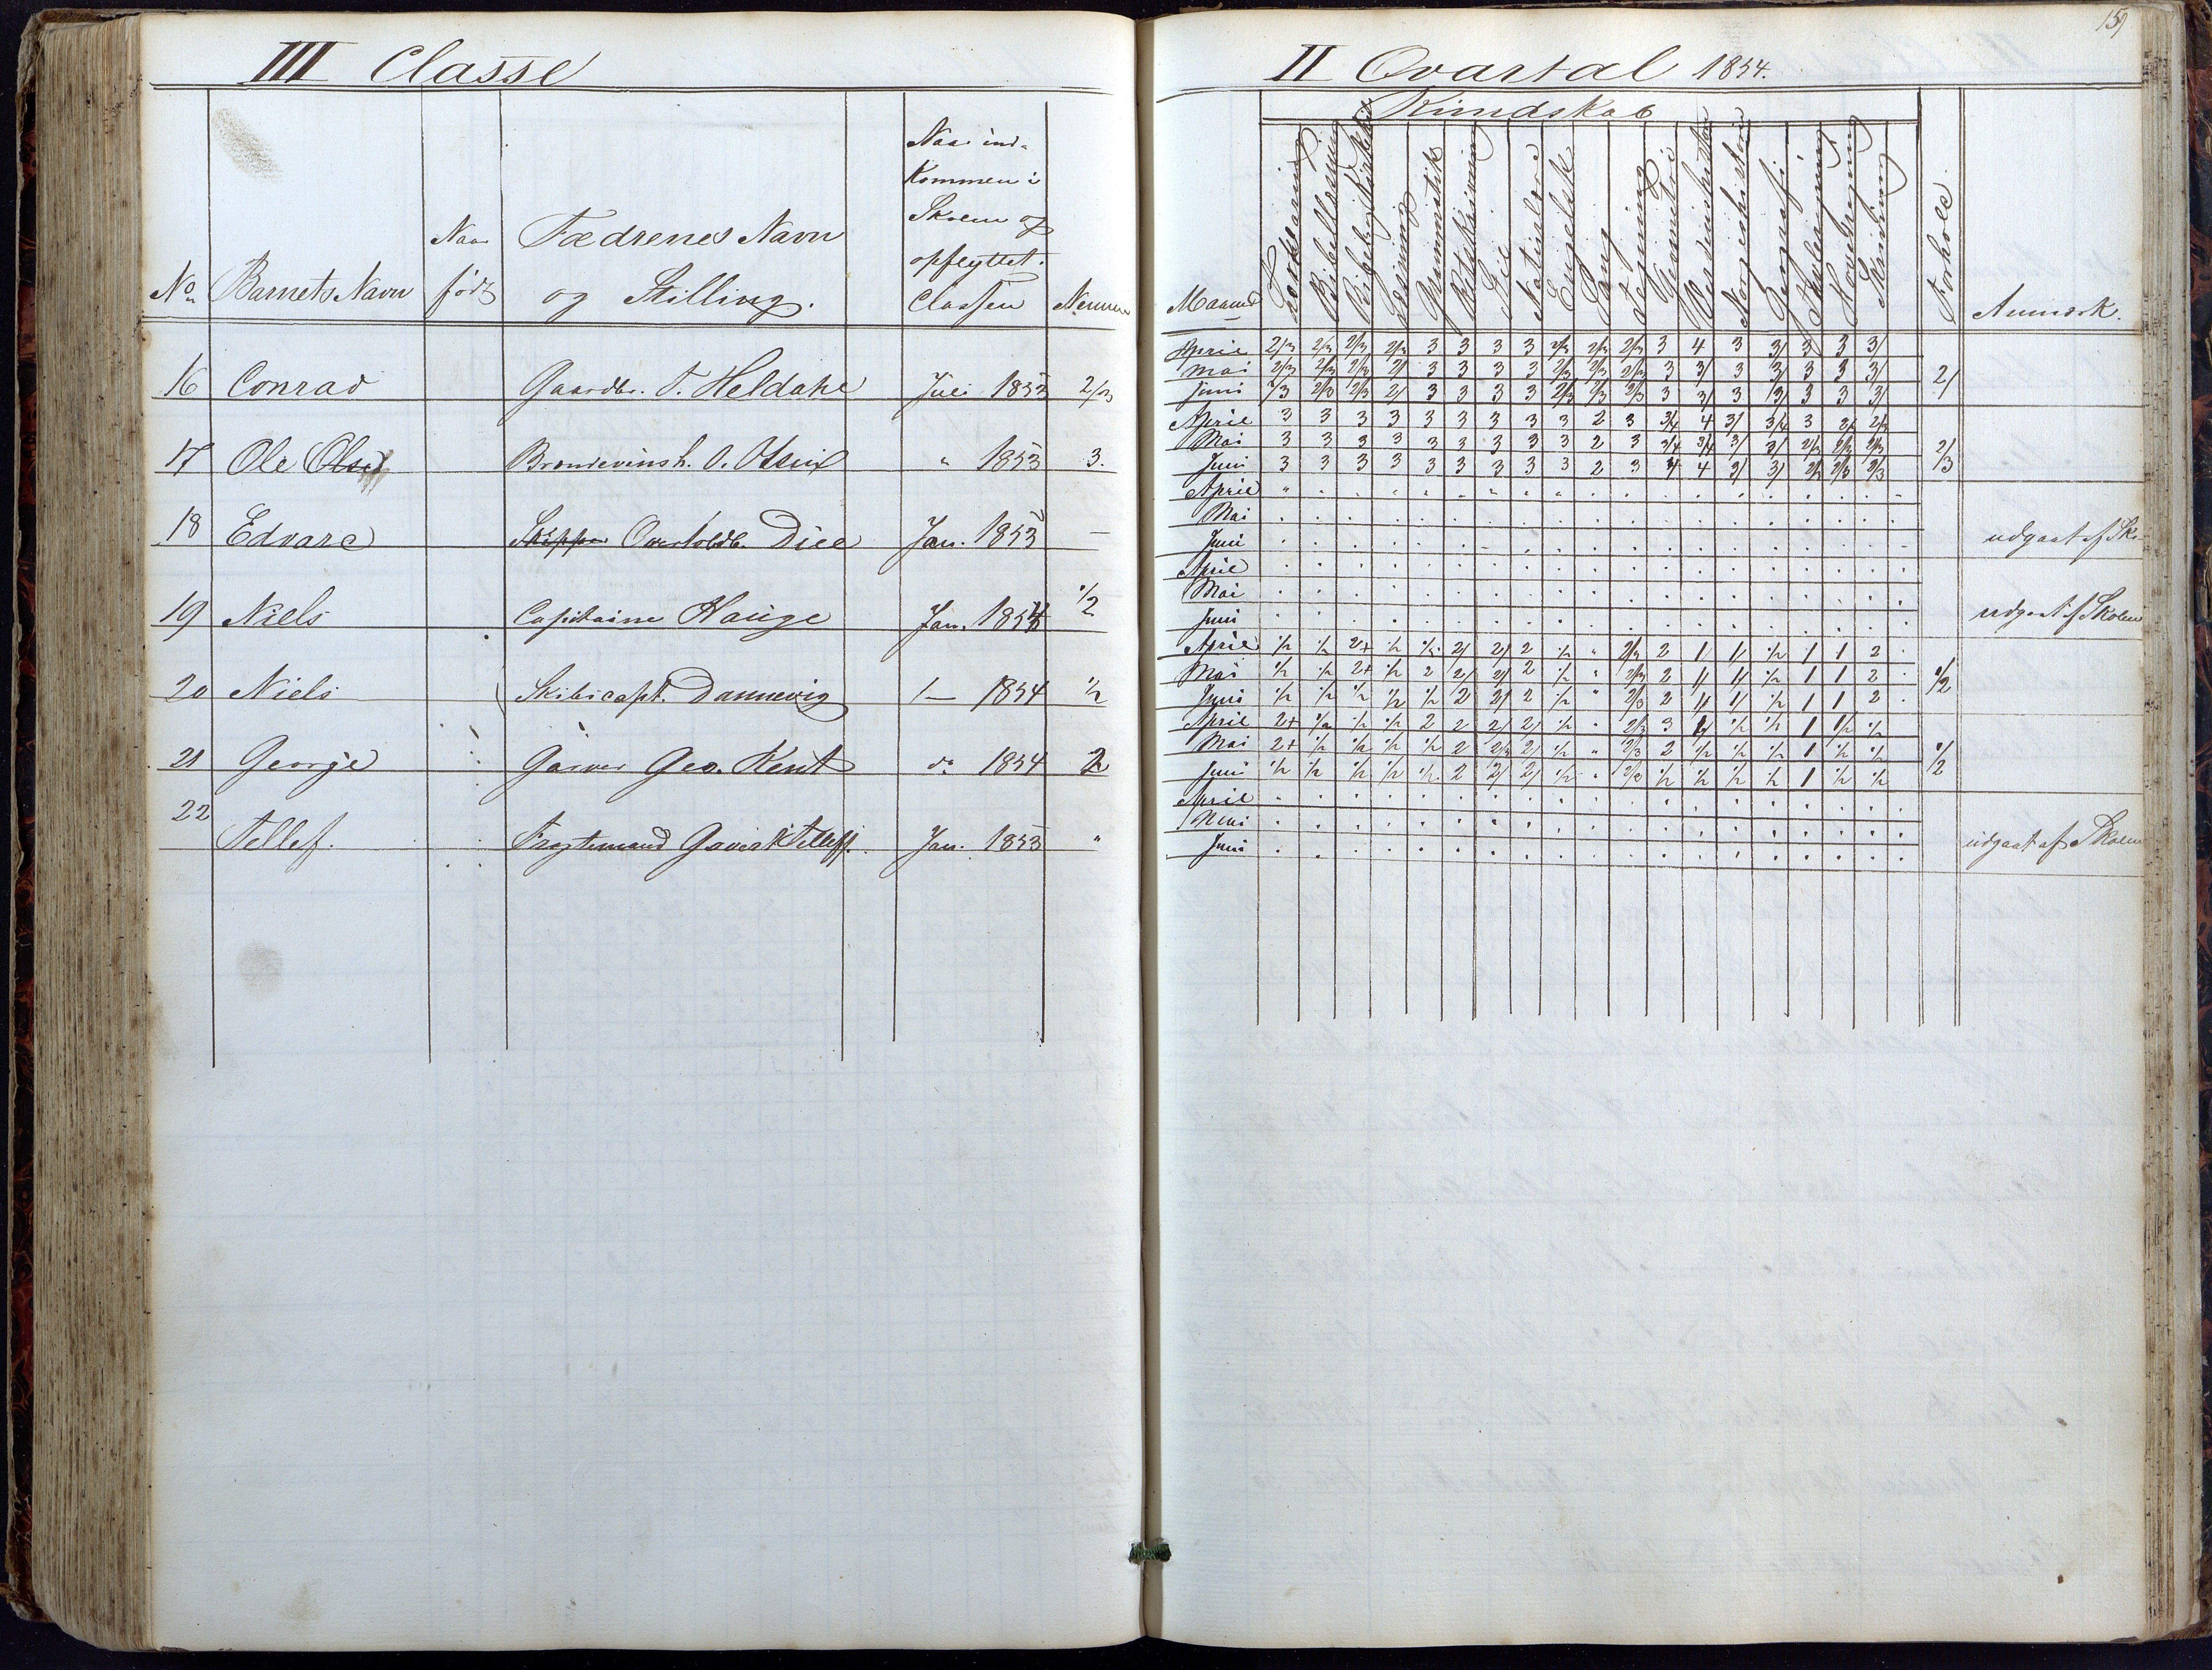 III Classe
No Barnets Navn
Naar
født
Fædrenes Navn
og Stilling.
Naar ind-
kommen i
Skolen og
opflyttet i
Classen
Nemme
16 Conrad Gaardbr. T. Heldahl Juli 1853 2/3
17 Ole Olsen Brændevinsh. O. " 1853 3.
18 Edvard Skipper Overtoldb. Jan. 1853 –
19 Niels Capitaine Hauge Jan. 1854 1/2
20 Niels Skibscapt. Dannevig 1 – 1854 1/2
21 George Garver Geo. Kent do 1854 2
22 Tellef. Jan. 1853 "
159
II Qvartal 1854.
Kundskab
Maaned
Grammatik
Stil
Naturlære
Engelsk
Sang
Tegning
Geometri
Verdenshistorie
Norgeshistorie
Geografi
Tavleregning
Hovedregning
Skrivning
Forhold.
Anmærk.
April 2/3 2/3 2/3 2/3 3 3 3 3 2/3 2/3 2/3 3 4 3 3/ 3 3 3/
Mai 2/3 2/3 2/3 2/ 3 3 3 3 2/3 2/3 2/3 3 3/ 3 3/ 3 3 3/
Juni 2/3 2/3 2/3 2/ 3 3 3 3 2/3 2/3 2/3 3 3/ 3 3/ 3 3 3/
2/
April 3 3 3 3 3 3 3 3 3 2 3 3/4 4 3/ 3/4 3 2/ 2/3
Mai 3 3 3 3 3 3 3 3 3 2 3 3/4 3/4 3/ 3/ 2/3 2/3 2/3
Juni 3 3 3 3 3 3 3 3 3 2 3 4 4 3/ 3/ 2/3 2/3 2/3
2/3
April
Mai
Juni udgaat af Sko-
April
Mai
Juni udgaat af Skolen
April 1/2 1/2 2+ 1/2 1/2 2/ 2/ 2 1/2 " 2/3 2 1/ 1/ 1/2 1 1 2
Mai 1/2 1/2 2+ 1/2 2 2/ 2/ 2 1/2 " 2/3 2 1/ 1/ 1/2 1 1 2
Juni 1/2 1/2 1/2 1/2 1/2 2 2/ 2 1/2 " 2/3 2 1/ 1/ 1/2 1 1 2
1/2
April 2+ 1/2 1/2 1/2 2 2 2/ 2/ 1/2 " 2/3 3 1/ 1/2 1/2 1 1/2 1/2
Mai 2+ 1/2 1/2 1/2 1/2 2 2/3 2/ 1/2 " 2/3 2 1/2 1/2 1/2 1 1/2 1/2
Juni 1/2 1/2 1/2 1/2 1/2 2 2/ 2/ 1/2 " 2/3 1/2 1/2 1/2 1/2 1 1/2 1/2
1/2
April
Mai
Juni udgaat af Skolen